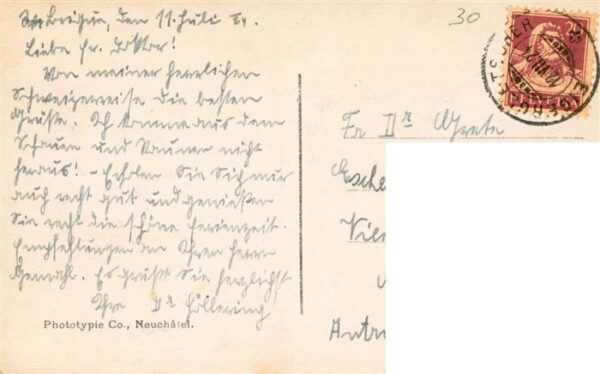 den 11. Juli 24.
Liebe Fr. Doktor!
Von meiner herrlichen
Schweizerreise die besten
Grüße. Ich komme aus dem
Schauen und Staunen nicht
heraus! – Erholen Sie Sich nur
auch recht gut und genießen
Sie recht die schöne Ferienzeit.
Empfehlungen an Ihren Herrn
Gemahl. Es grüßt Sie herzlichst
Ihre Dr Höllering
Phototypie Co., Neuchâtel.
30
Fr Dr Grete